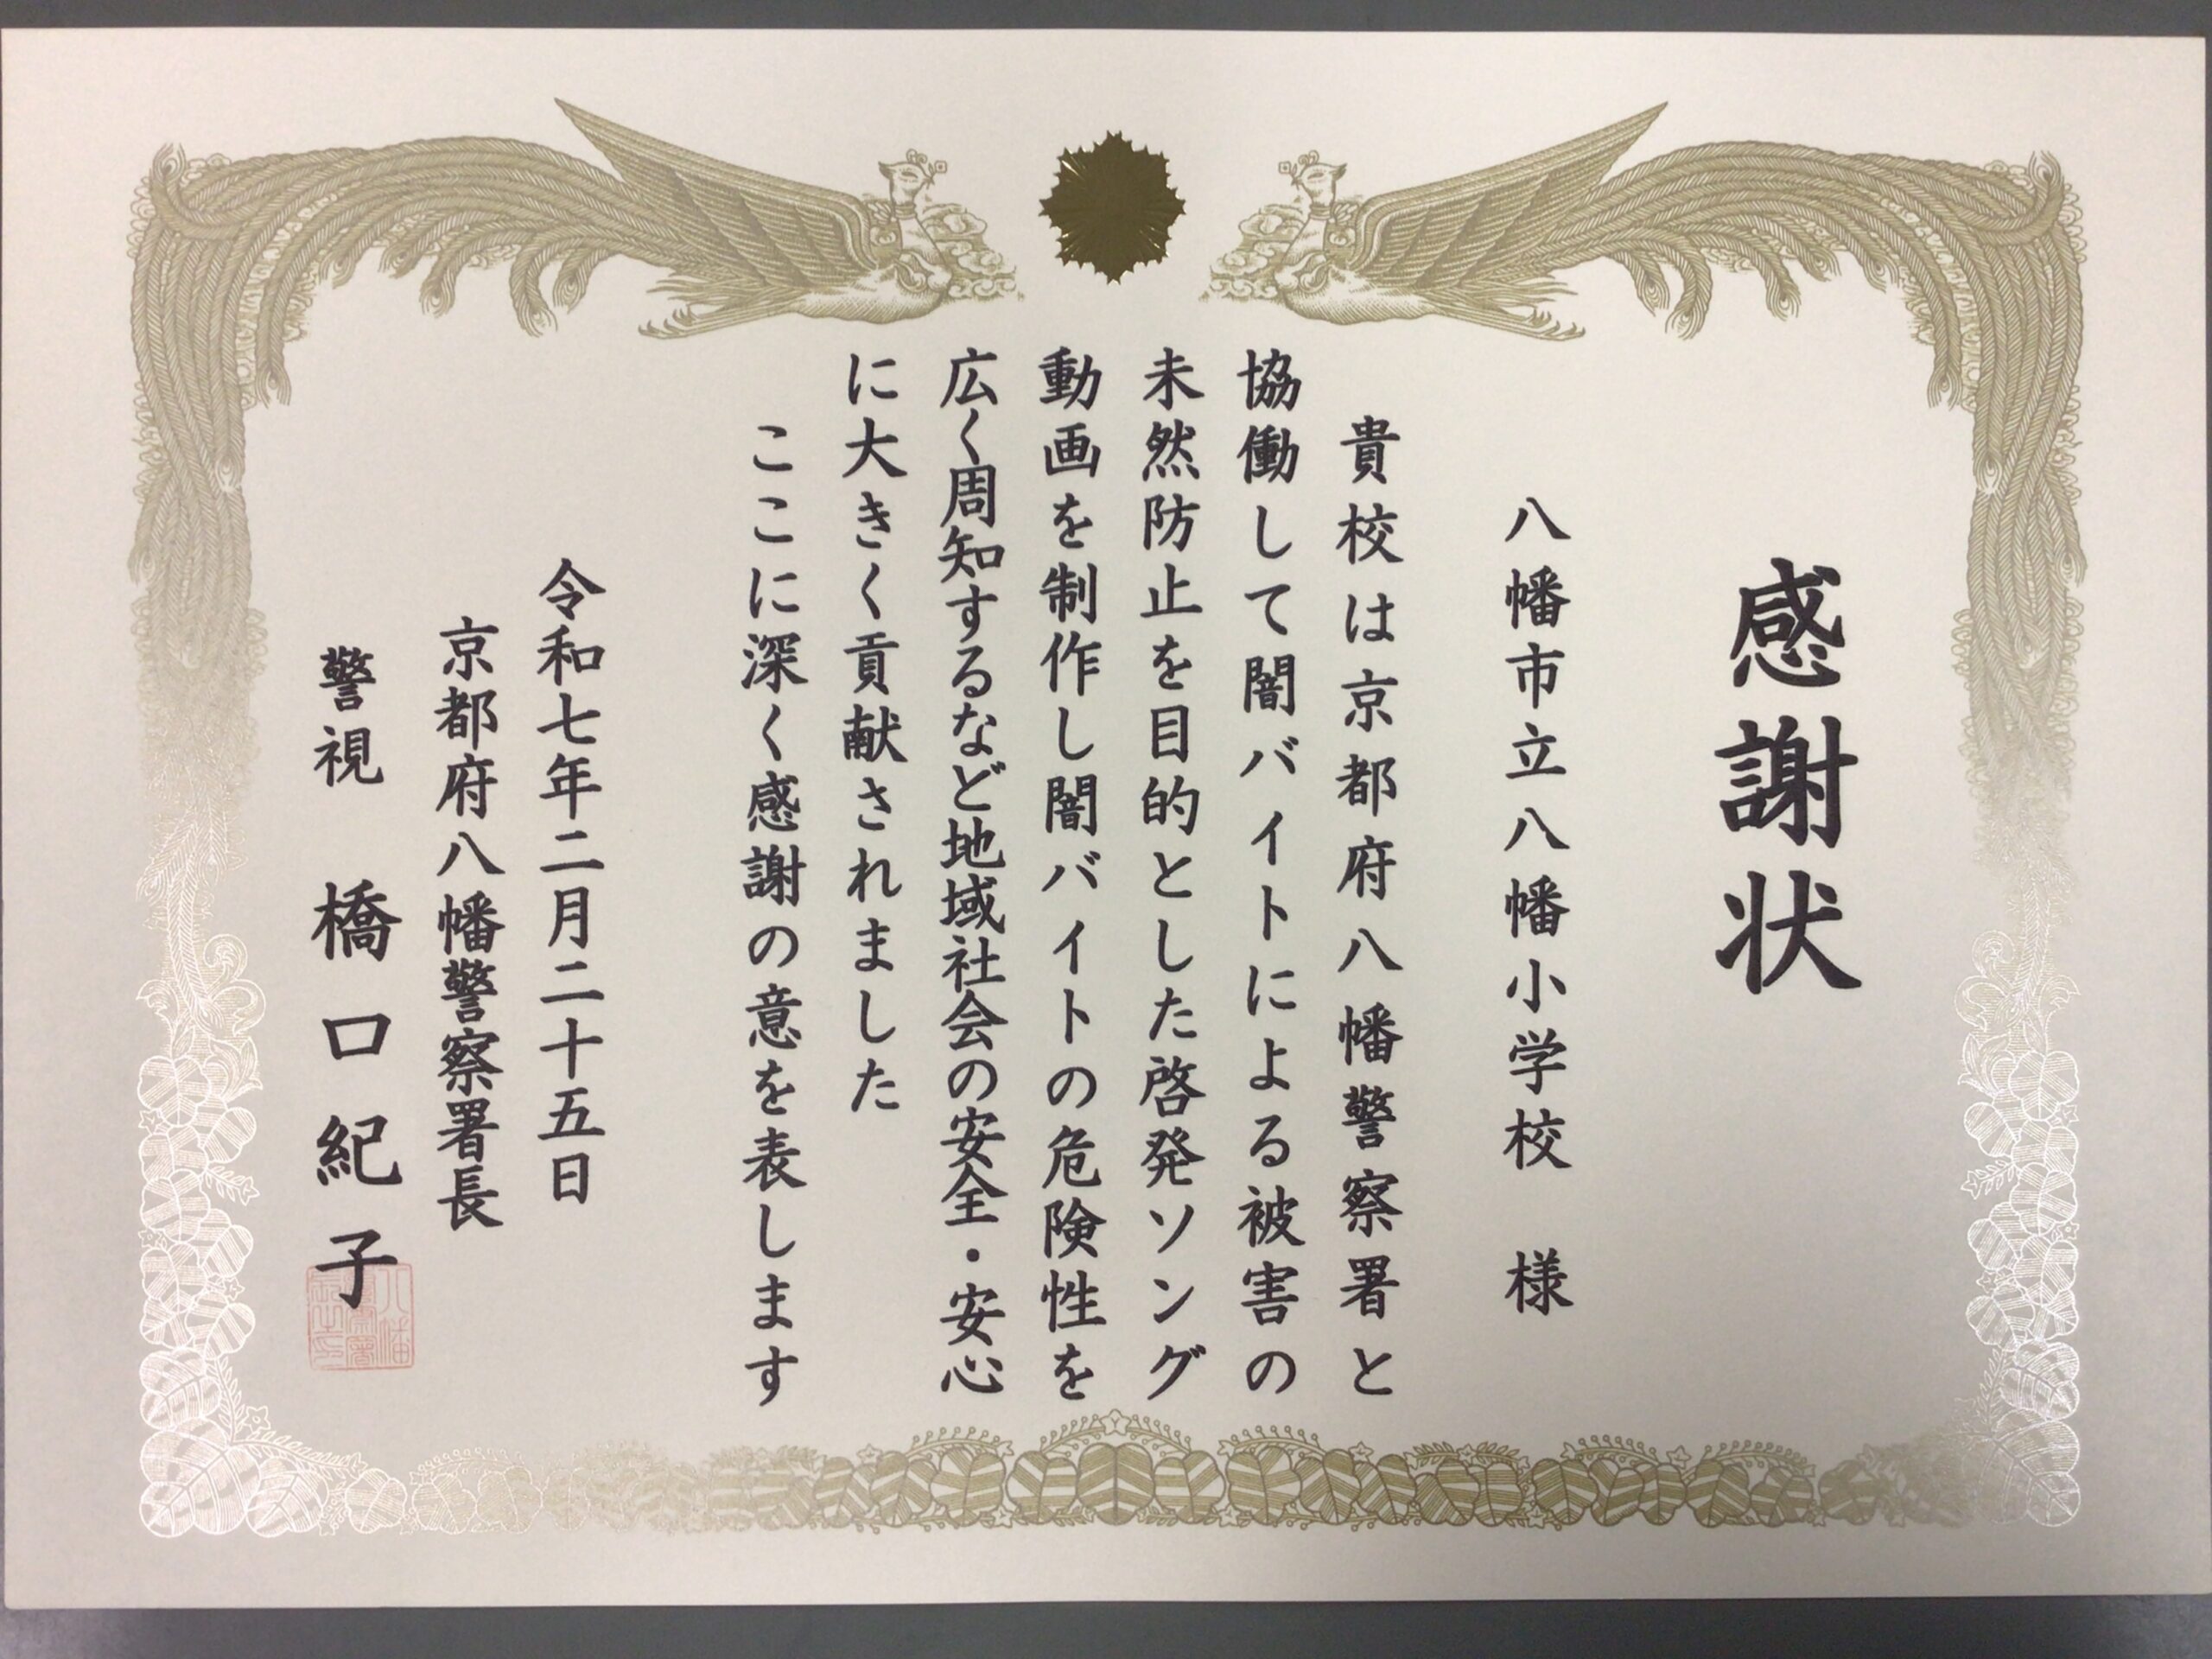 感謝状
八幡市立八幡小学校　様
貴校は京都府八幡警察署と
協働して闇バイトによる被害の
未然防止を目的とした啓発ソング
動画を制作し闇バイトの危険性を
広く周知するなど地域社会の安全・安心
に大きく貢献されました
ここに深く感謝の意を表します
令和七年二月二十五日
京都府八幡警察署長
警視　橋口紀子